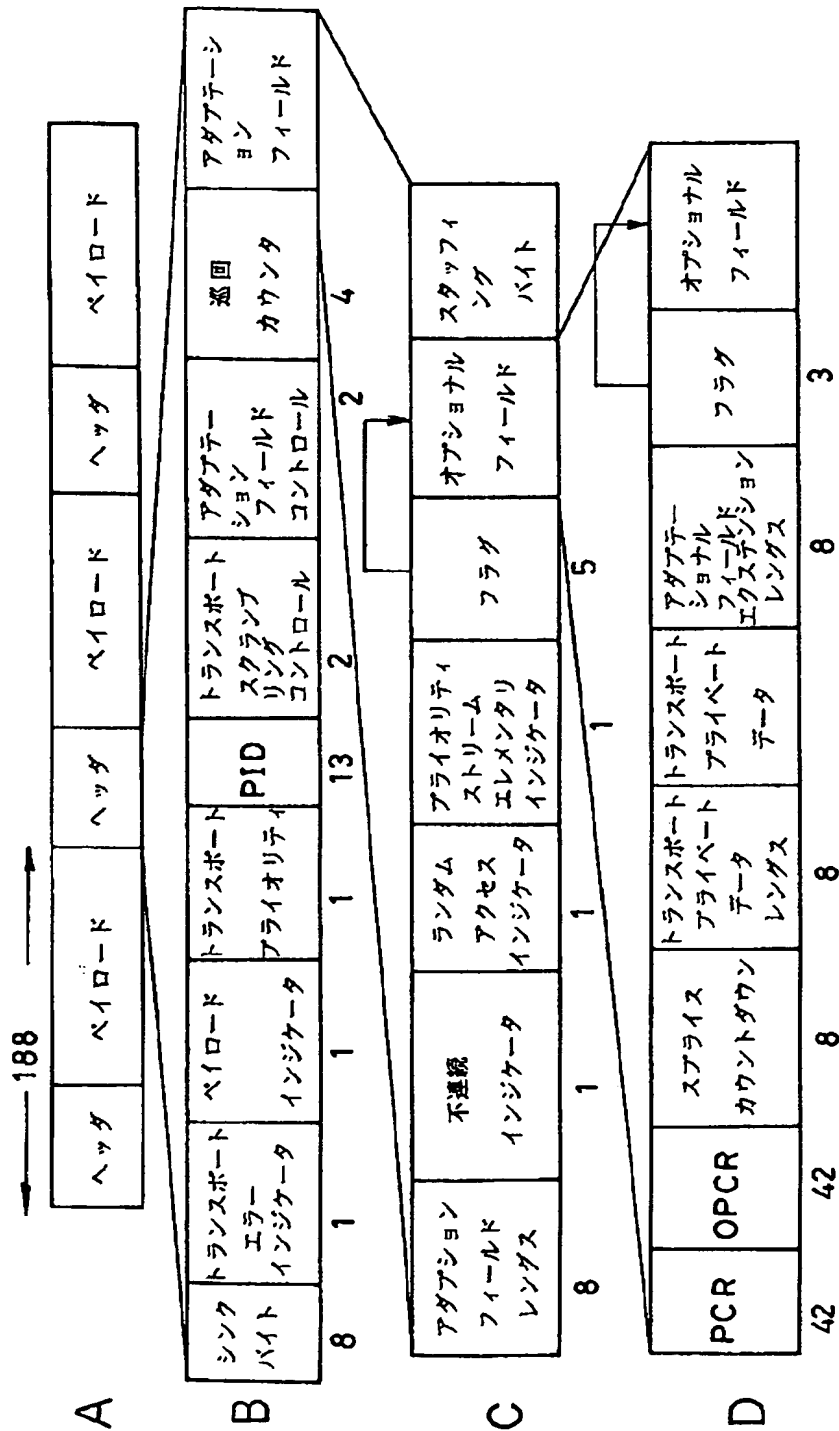 A
188
ヘッダ
ペイロード
ヘッダ
ペイロード
ヘッダ
ペイロード
B
シンク
バイト
トランスポート
エラー
インジケータ
ペイロード
インジケータ
トランスポート
プライオリティ
PID
トランスポート
スクランブ
リング
コントロール
アダプテー
ション
フィールド
コントロール
巡回
カウンタ
アダプテーシ
ョン
フィールド
8
1
1
1
13
2
2
4
C
アダプション
フィールド
レングス
不連続
インジケータ
ランダム
アクセス
インジケータ
プライオリティ
ストリーム
エレメンタリ
インジケータ
フラグ
オプショナル
フィールド
スタッフィ
ング
バイト
8
1
1
1
5
D
PCR
OPCR
スプライス
カウントダウン
トランスポート
プライベート
データ
レングス
トランスポート
プライベート
データ
アダプテー
ショナル
フィールド
エクステンション
レングス
フラグ
オプショナル
フィールド
42
42
8
8
8
3